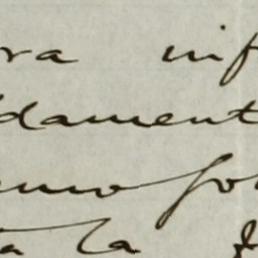 ra inf
dament
nno fo
ta la